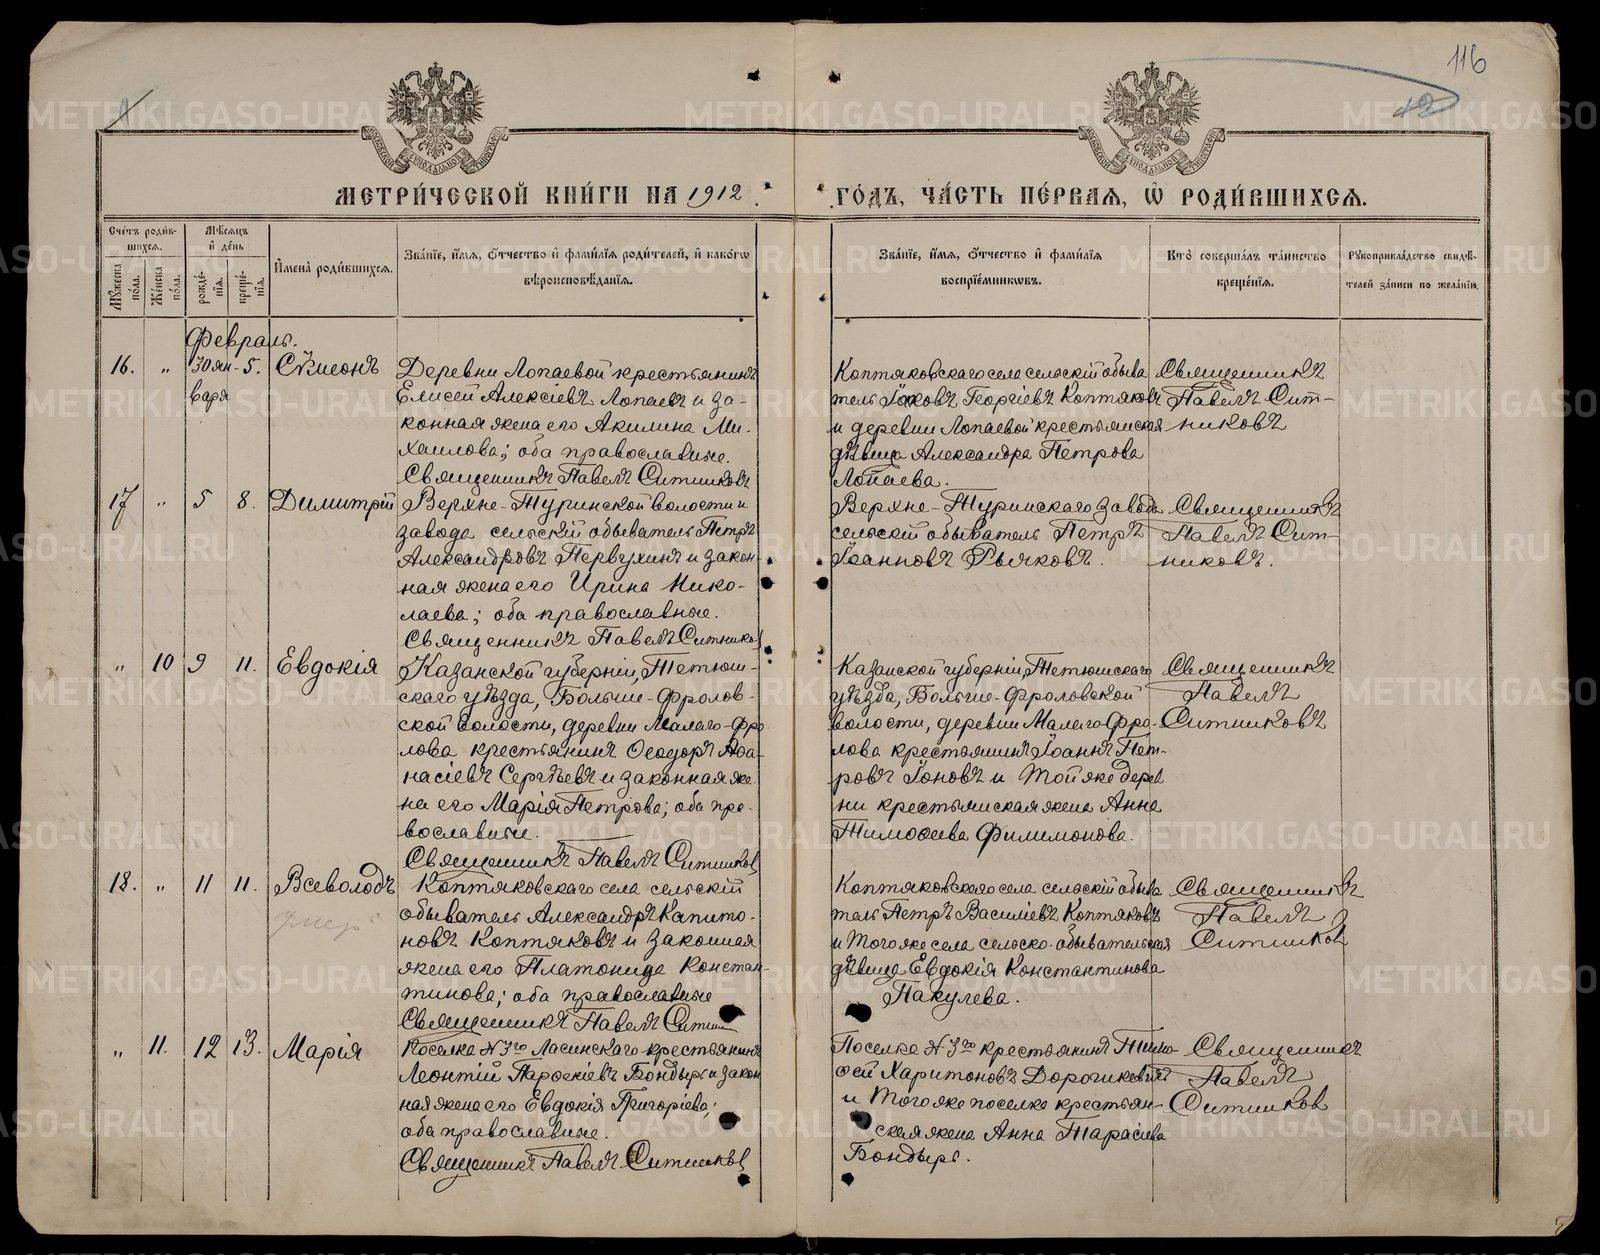 116
12
МЕТРИ́ЧЕСКОЙ КНИ́ГИ НА 1912 ГО́ДЪ, ЧА́СТЬ ПЕ́РВАЯ, Ѽ РОДИ́ВШИХСЯ.
Сче́тъ роди́вшихся.
Мꙋ́жеска по́ла.
Же́нска по́ла.
Мѣ́сяцъ и҆ де́нь
рожде́нїя.
креще́нїя.
И҆мена̀ роди́вшихся.
Зва́нїе, и҆́мя, ѻ҆́тчество и҆ фами́лїя роди́телей, и҆ како́гѡ
вѣроисповѣ́данїя.
Зва́нїе, и҆́мя, ѻ҆́тчество и҆ фами́лїя
воспрїе́мникѡвъ.
Кто̀ соверша́лъ та́инство
креще́нїя.
Рꙋкоприкла́дство свидѣ́-
телей за́писи по жела́нїю.
Февраль.
16. „ 30 ян- 5. Сѵмеонъ
варя
Деревни Лопаевой крестьянинъ
Елисей Алексіевъ Лопаевъ и за-
конная жена его Акилина Ми-
хаилова; оба православные.
Священникъ Павелъ Ситниковъ
Коптяковскаго села сельскій обыва
тель Іаковъ Георгіевъ Коптяковъ
и деревни Лопаевой крестьянская
дѣвица Александра Петрова
Лопаева.
Священникъ
Павелъ Сит-
никовъ
17 „ 5 8. Димитрій
Верхне-Туринской волости и
завода сельскій обыватель Петръ
Александровъ Первухинъ и закон
ная жена его Ирина Нико-
лаева; оба православные.
Священникъ Павелъ Ситников
Верхне-Туринскаго завода
сельскій обыватель Петръ
Іоанновъ Рычковъ.
Священникъ
Павелъ Сит-
никовъ.
„ 10 9 11. Евдокія
Казанской губерніи, Тетюш-
скаго уѣзда, Больше-Фролов-
ской волости, деревни Малаго-Фро
лова крестьянинъ Ѳеодоръ Аѳа-
насіевъ Сергѣевъ и законная же-
на его Марія Петрова; оба пра-
вославные.
Священникъ Павелъ Ситников
Казанской губерніи, Тетюшскаго
уѣзда, Больше-Фроловской
волости, деревни Малаго Фро-
лова крестьянинъ Іоаннъ Пет-
ровъ Іоновъ и той же дерев
ни крестьянская жена Анна
Тимоѳеева Филимонова.
Священникъ
Павелъ
Ситниковъ
18. „ 11 11. Всеволодъ
умер
Коптяковскаго села сельскій
обыватель Александръ Капито-
новъ Коптяковъ и законная
жена его Платонида Констан-
тинова; оба православные
Священникъ Павелъ Ситни
Коптяковскаго села сельскій обыва
тель Петръ Василіевъ Коптяковъ
и того же села сельско-обывательская
дѣвица Евдокія Константинова
Пакулева.
Священникъ
Павелъ
Ситников
„ 11. 12 13. Марія
Поселка № 3го Ласинскаго крестьянинъ
Леонтій Параскіевъ Бондырь и закон
ная жена его Евдокія Григоріева;
оба православные.
Священникъ Павелъ Ситников
Поселка № 3го крестьянинъ Тимо-
ѳей Харитоновъ Дорошкевичъ
и того же поселка крестьян-
ская жена Анна Тарасіева
Бондырь.
Священникъ
Павелъ
Ситников